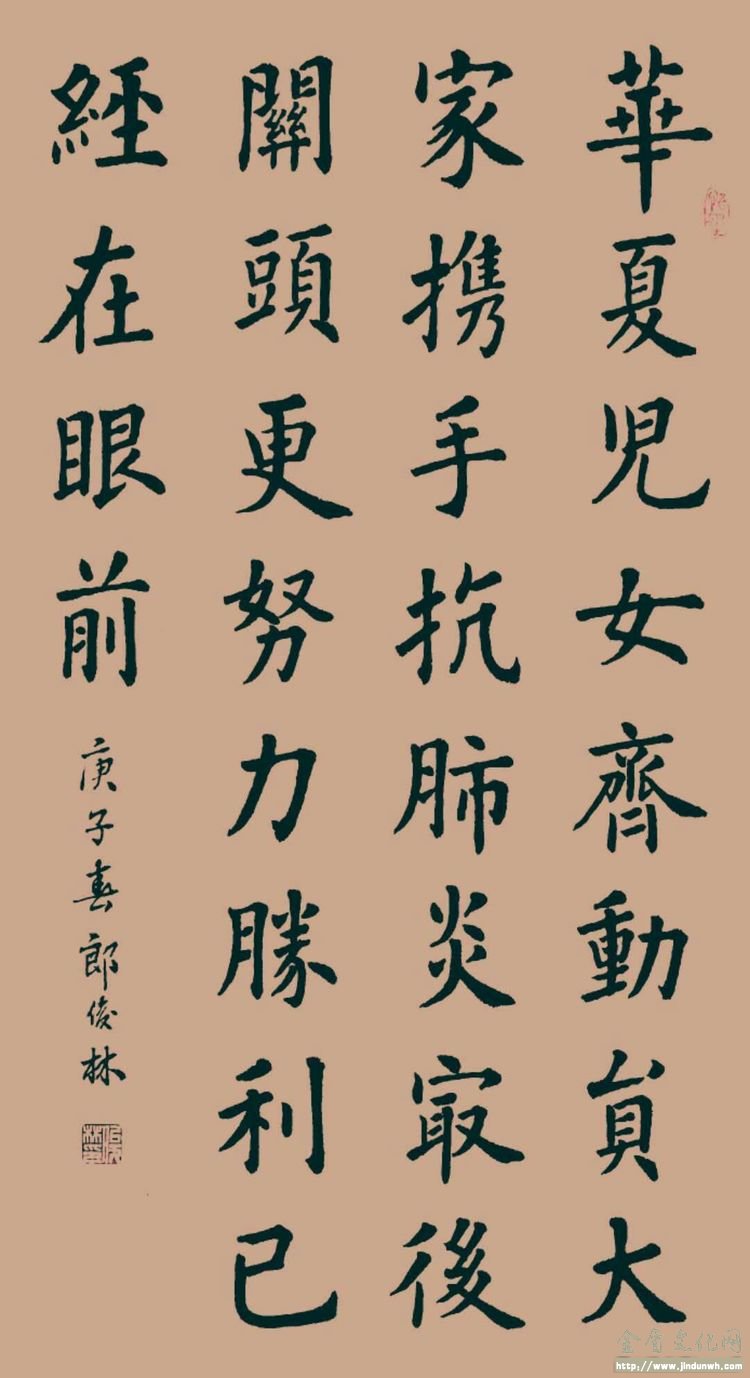 華夏児女齊動員大
家携手抗肺炎㝡後
關頭更努力勝利已
經在眼前
庚子春郎俊林
金盾文化网
http://www.jindunwh.com